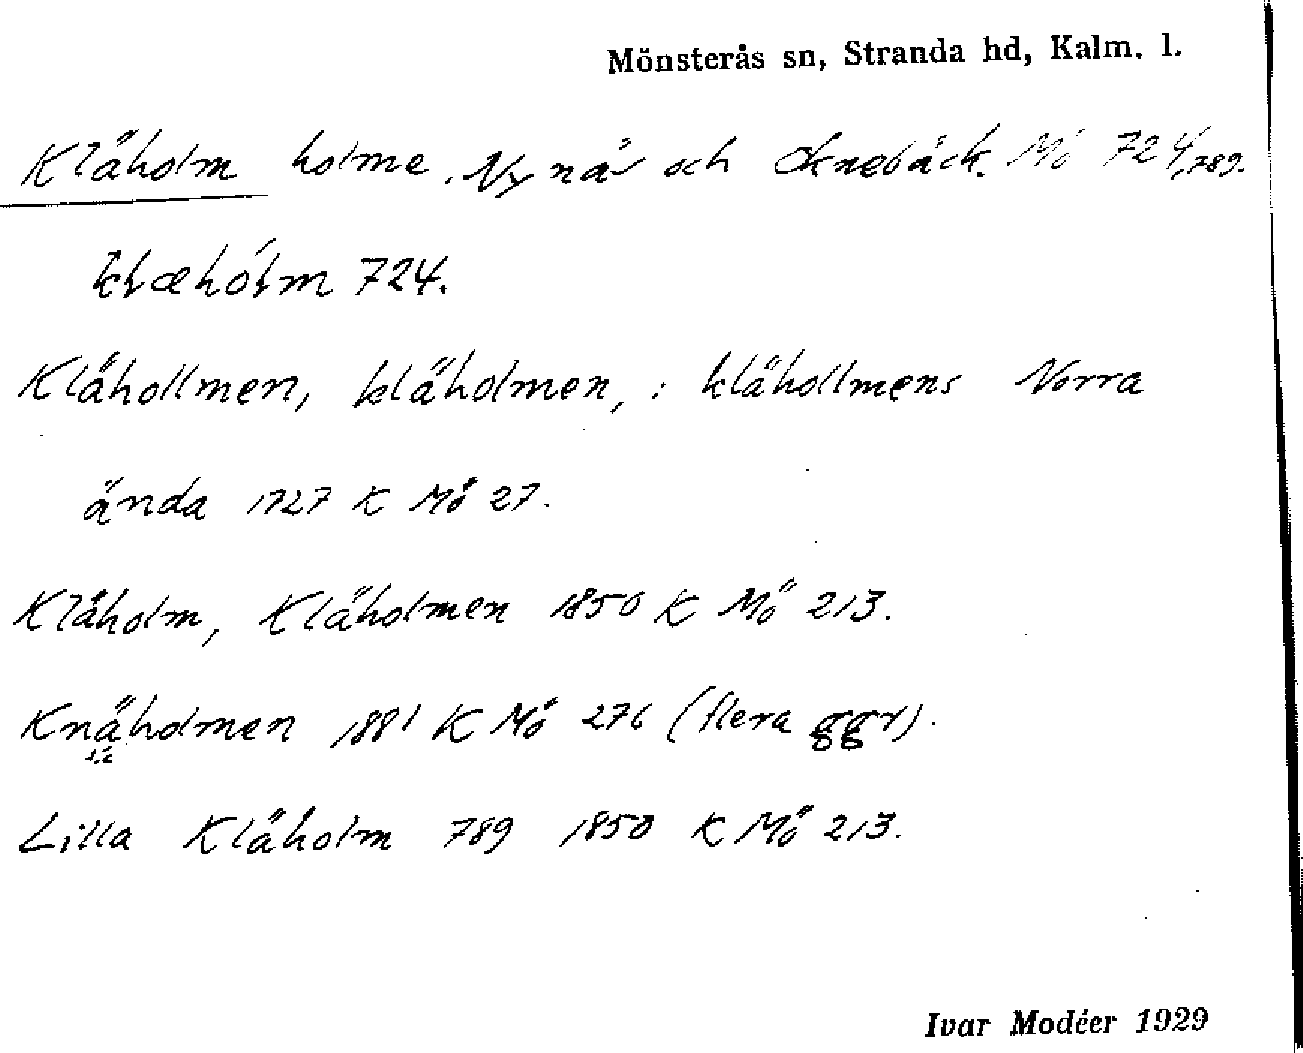 Mönsterås sn, Stranda hd, Kalm. l.
Kläholm holme. Nynäs och Oknebäck. Mö 724, 789.
klæhólm 724.
Klähollmen, kläholmen, : klähollmens Norra
ända 1727 K Mö 27.
Kläholm, Kläholmen 1850 K Mö 213.
Knäholmen 1881 K Mö 276 (flera ggr).
sic
Lilla Kläholm 789 1850 K Mö 213.
Ivar Modéer 1929